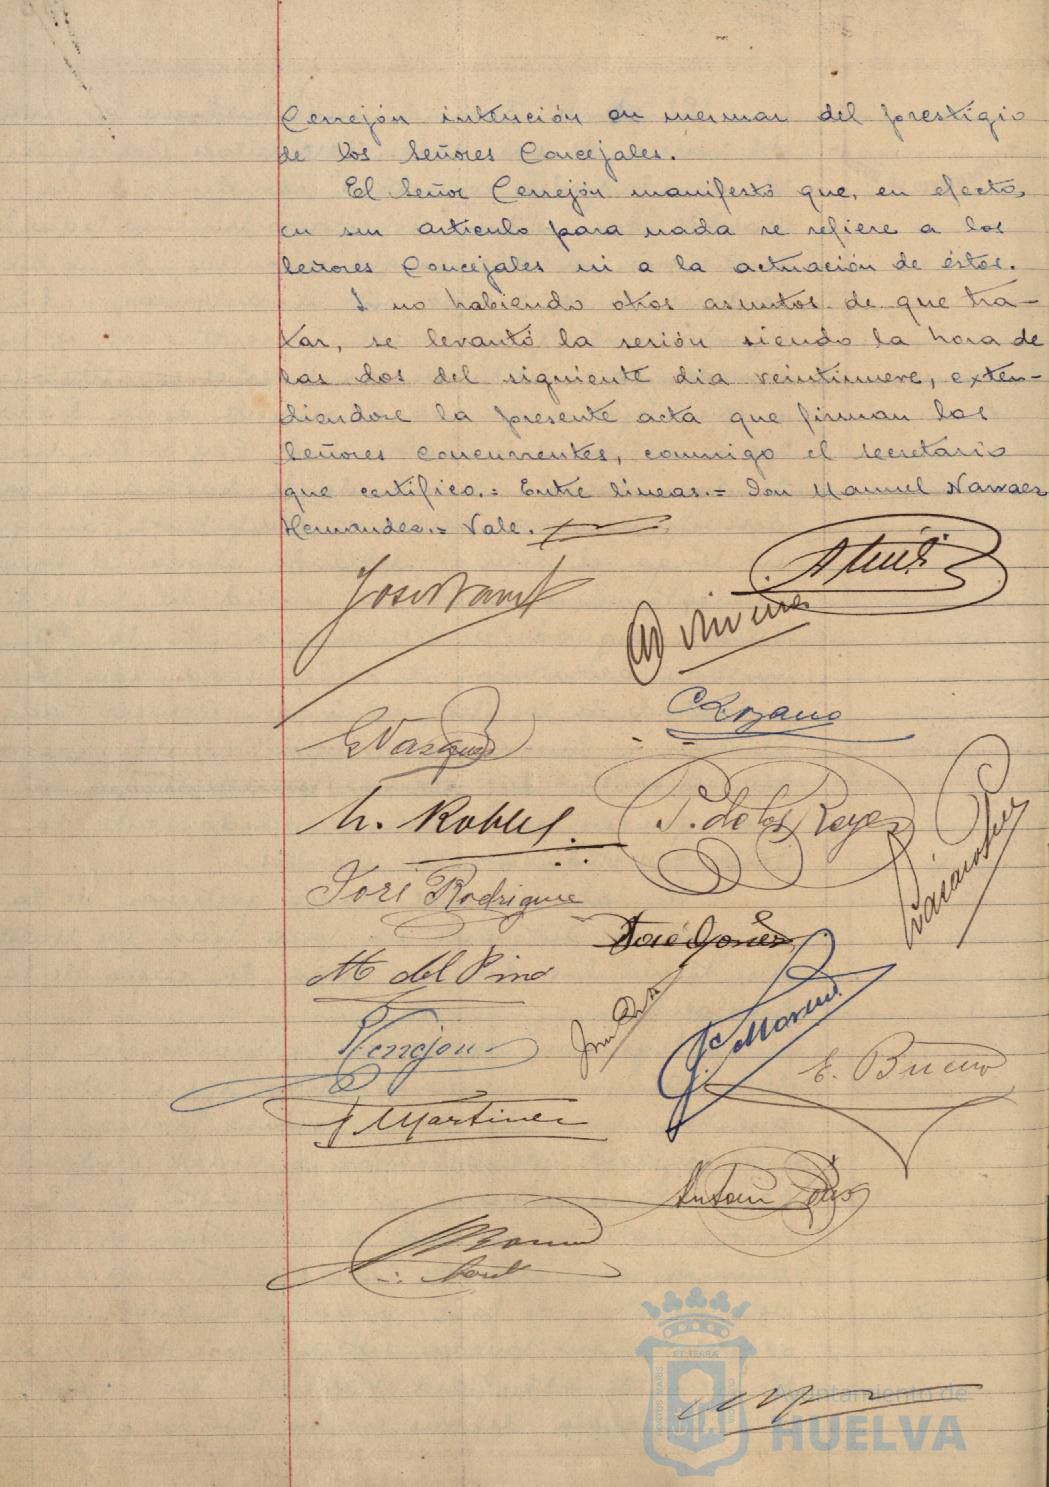 Cerrejón intención en mermar del prestigio
de los Señores Concejales.
El Señor Cerrejón manifestó que, en efecto,
en su artículo para nada se refiere a los
Señores Concejales ni a la actuación de éstos.
Y no habiendo otros asuntos de que tra-
tar, se levantó la sesión siendo la hora de
las dos del siguiente día veintinueve, exten-
diendose la presente acta que firman los
Señores concurrentes, conmigo el secretario
que certifico.= Entre líneas.= Don Manuel Narvaez
Hernandez.= Vale.
C Lozano
E Vazquez
M. Robles.
P. de los Reyes
José Rodriguez
José Gomez
M del Pino
Cerrejon
E. Bueno
J Martinez
Antonio
ET TERRAE
PORTUS MARIS
Ayuntamiento de
HUELVA